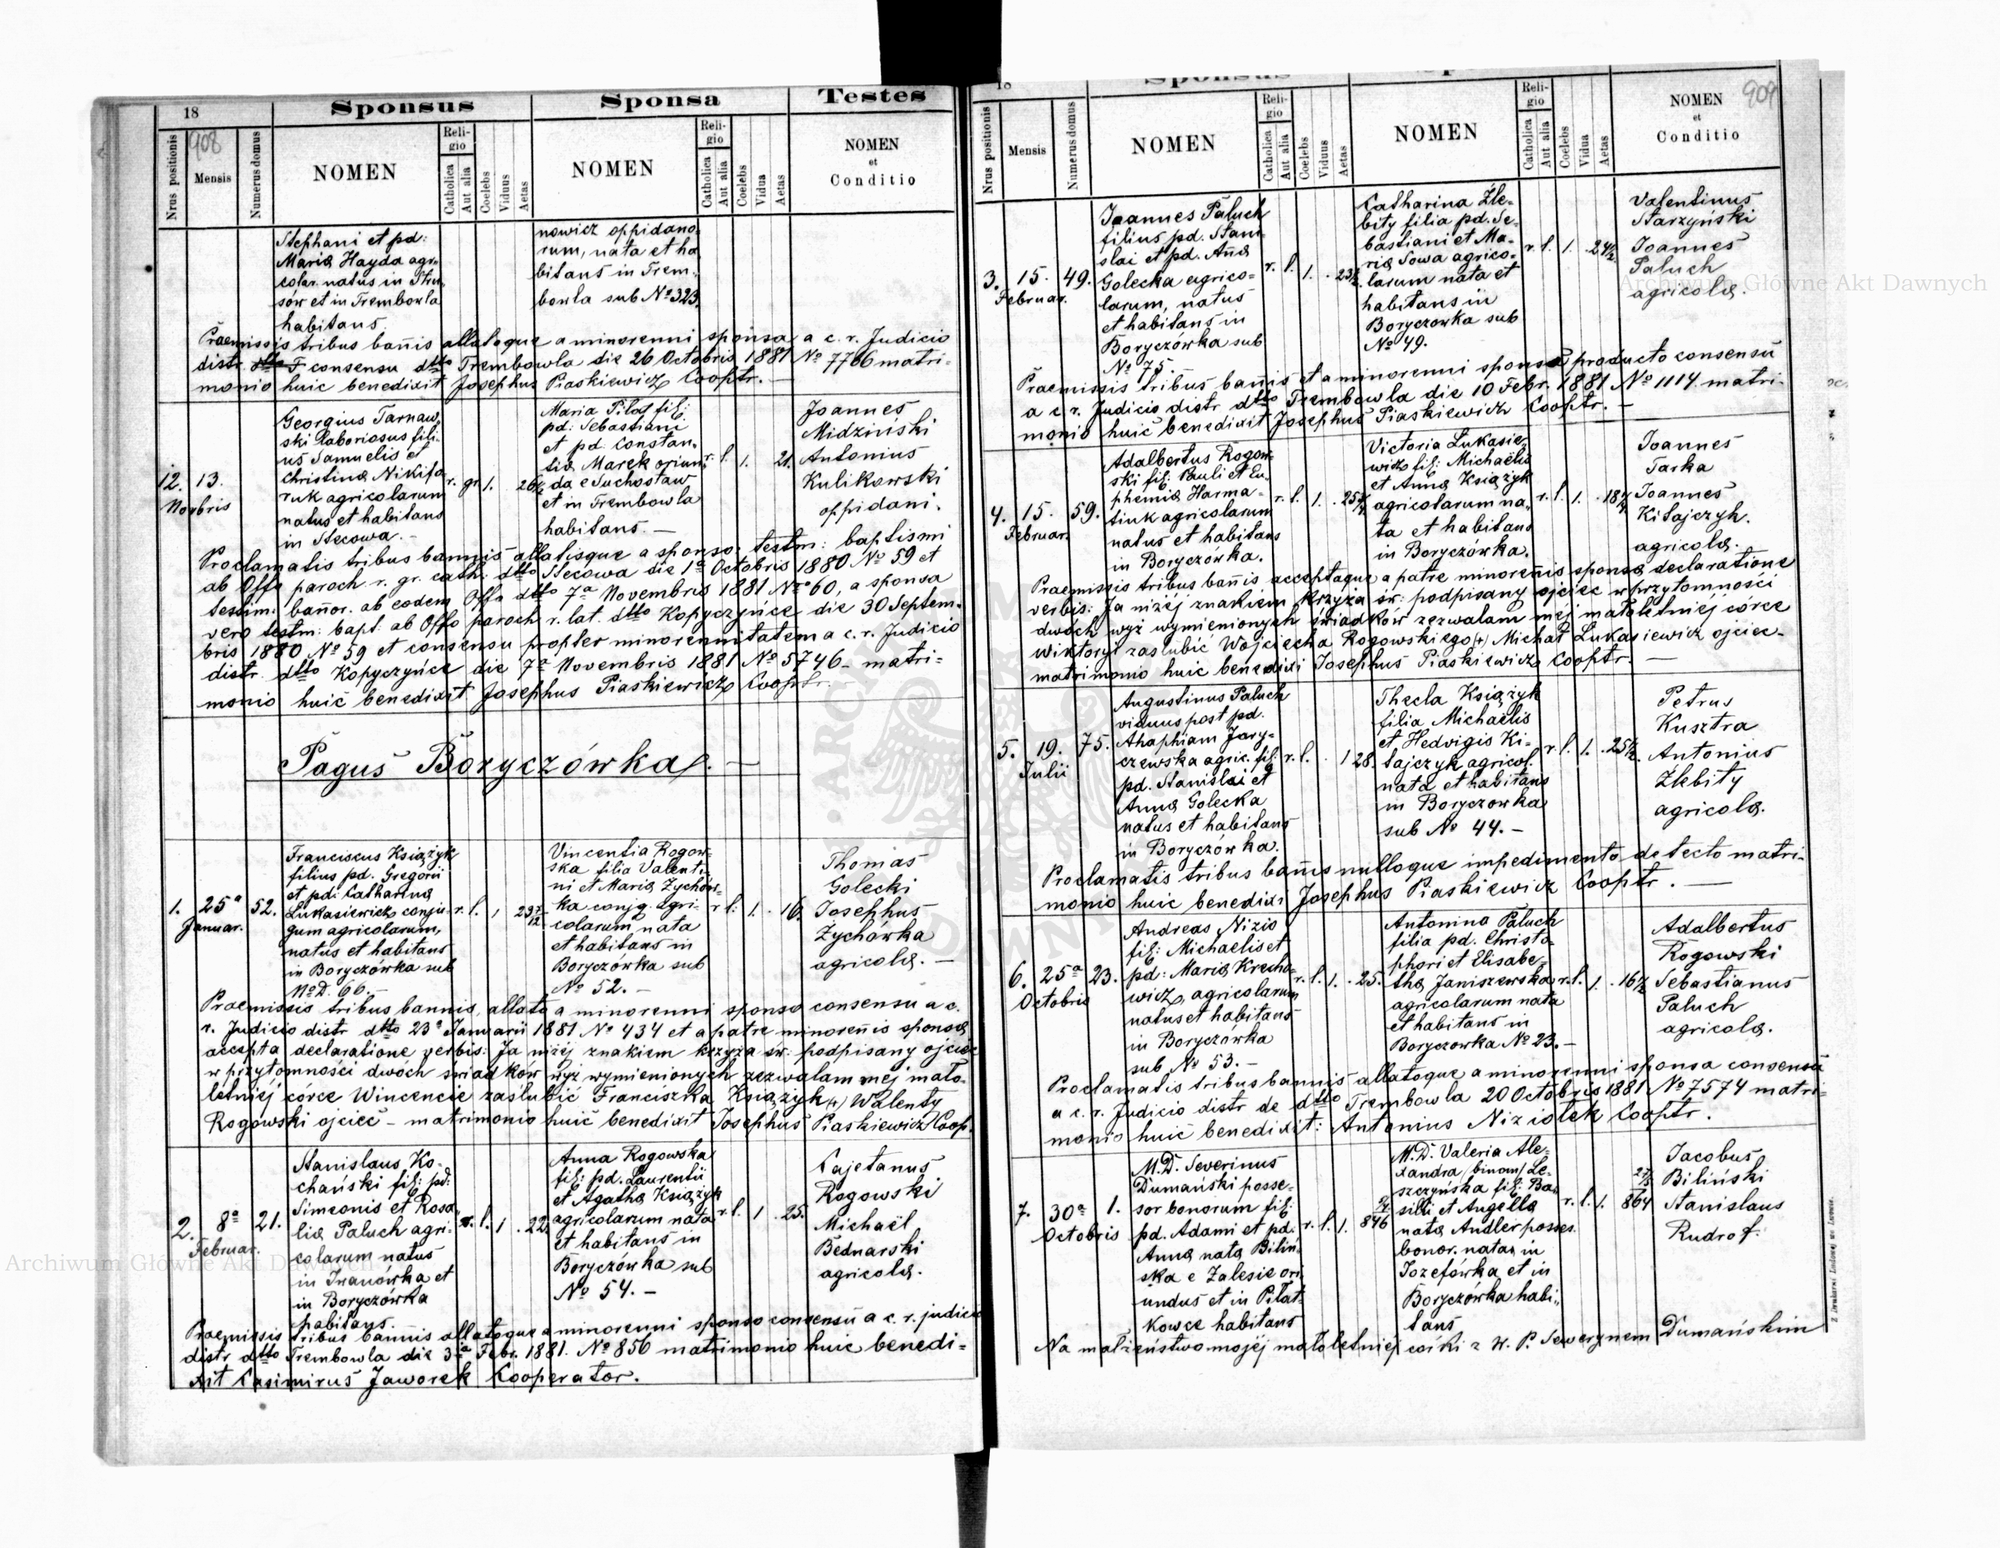 18
908
Sponsus
Sponsa
Testes
Nrus positionis
Mensis
Numerus domus
NOMEN
Religio
Catholica
Aut alia
Coelebs
Viduus
Aetas
NOMEN
Religio
Catholica
Aut alia
Coelebs
Vidua
Aetas
NOMEN
et
Conditio
Stephani et pd:
Maria Hayda agri-
colar. natus in Stru-
sów et in Trembowla
habitans
nowicz oppidano-
rum, nata et ha-
bitans in Trem-
bowla sub No 323.
Praemissis tribus bannis allatoque a minorenni sponsa a c. r. Judicio
distr. consensu dtto Trembowla die 26 Octobris 1881 No 7766 matri-
monio huic benedixit Josephus Piaskiewicz Cooptr. —
12. 13.
Novbris
Georgius Tarnaw-
ski Laboriosus fili-
us Samuelis et
Christina Nikifo-
ruk agricolarum
natus et habitans
in Stecowa. —
r. gr. 1. 26
Maria Pilat fil:
pd: Sebastiani
et pd Constan-
tia Marek oriun-
da e Suchostaw
et in Trembowla
habitans. —
r. l. 1. 21.
Joannes
Midziński
Antonius
Kulikowski
oppidani.
Proclamatis tribus bannis allatisque a sponso testm: baptismi
ab Offo paroch r. gr. cath. dtto Stecowa die 1a Octobris 1880 No 59 et
testim. bannor. ab eodem Offo dtto 7a Novembris 1881 Nro 60, a sponsa
vero testm: bapt: ab Offo paroch r. lat. dtto Kopyczyńce die 30 Septem-
bris 1880 No 59 et consensu propter minorennitatem a c. r. Judicio
distr. dtto Kopyczyńce die 7a Novembris 1881 No 5746 — matri-
monio huic benedixit Josephus Piaskiewicz Cooptr.
Pagus Boryczówka. —
1. 25a 52.
Januar.
Franciscus Książyk
filius pd. Gregorii
et pd: Catharina
Lukasiewicz conju-
gum agricolarum,
natus et habitans
in Boryczówka sub
No D. 66. —
r. l. 1 23 7/12
Vincentia Rogow-
ska filia Valenti-
ni et Maria Zychów-
ka conjg. agri-
colarum nata
et habitans in
Boryczówka sub
No 52. —
r l. 1. 16.
Thomas
Golecki
Josephus
Zychówka
agricola. —
Praemissis tribus bannis, allato a minorenni sponso consensu a c.
r. Judicio distr dtto 23a Januarii 1881 No 434 et a patre minorenis sponsa
accepta declaratione verbis: Ja niżej znakiem krzyża św: podpisany ojciec
w przytomności dwóch świadków wyż wymienionych zezwalam mej mało-
letniej córce Wincencie zaślubić Franciszka Książyk (+) Walenty
Rogowski ojciec — matrimonio huic benedixit Josephus Piaskiewicz Koop.
2. 8a 21.
Februar.
Stanislaus Ko-
chański fil: pd:
Simeonis et Rosa-
lia Paluch agri-
colarum natus
in Iwanówka et
in Boryczówka
habitans.
r. l. 1 22
Anna Rogowska
fil: pd. Laurentii
et Agatha Książyk
agricolarum nata
et habitans in
Boryczówka sub
No 54. —
r l. 1 25.
Cajetanus
Rogowski
Michaël
Bednarski
agricola.
Praemissis tribus bannis allatoque a minorenni sponso consensu a c. r. judicio
distr dtto Trembowla die 3a Febr. 1881. No 856 matrimonio huic benedi-
xit Casimirus Jaworek Cooperator.
18
909
Nrus positionis
Mensis
Numerus domus
NOMEN
Religio
Catholica
Aut alia
Coelebs
Viduus
Aetas
NOMEN
Religio
Catholica
Aut alia
Coelebs
Vidua
Aetas
NOMEN
et
Conditio
3. 15. 49.
Februar.
Joannes Paluch
filius pd. Stani-
slai et pd. Ana
Golecka agrico-
larum, natus
et habitans in
Boryczówka sub
No 75.
r. l. 1. 23½
Catharina Zle-
bity filia pd. Se-
bastiani et Ma-
ria Sowa agrico-
larum nata et
habitans in
Boryczowka sub
No 49.
r. l. 1. 24½
Valentinus
Starzyński
Joannes
Paluch
agricola.
Praemissis tribus bannis et a minorenni sponsa producto consensu
a c. r. Judicio distr dtto Trembowla die 10 Febr. 1881 No 1114 matri-
monio huic benedixit Josephus Piaskiewicz Cooptr. —
4. 15. 59.
Februar.
Adalbertus Rogow-
ski fil: Pauli et Eu-
phemia Harma-
tiuk agricolarum
natus et habitans
in Boryczówka.
r. l. 1. 25
Victoria Lukasie-
wicz fil: Michaëlis
et Anna Książyk
agricolarum na-
ta et habitans
in Boryczówka.
r. l. 1. 18
Joannes
Tarka
Joannes
Kitajczyk.
agricola.
Praemissis tribus bannis acceptaque a patre minorenis sponsa declaratione
verbis: Ja niżej znakiem krzyża św: podpisany ojciec w przytomności
dwóch wyż wymienionych świadków zezwalam mej małoletniej córce
Wiktoryi zaślubić Wojciecha Rogowskiego (+) Michał Lukasiewicz ojciec —
matrimonio huic benedixi Josephus Piaskiewicz Cooptr. —
5. 19. 75.
Julii
Augustinus Paluch
viduus post pd.
Ahaphiam Jary-
czewska agric. fil:
pd. Stanislai et
Anna Golecka
natus et habitans
in Boryczówka.
r. l. 1 28.
Thecla Książyk
filia Michaëlis
et Hedvigis Ki-
tajczyk agricol.
nata et habitans
in Boryczowka
sub No 44. —
r. l. 1. 25½
Petrus
Kusztra
Antonius
Zlebity
agricola.
Proclamatis tribus bannis nulloque impedimento detecto matri-
monio huic benedixi Josephus Piaskiewicz Cooptr. —
6. 25a 23.
Octobris
Andreas Nizio
fil: Michaelis et
pd: Maria Krecho-
wicz, agricolarum
natus et habitans
in Boryczówka
sub No 53. —
r. l. 1. 25.
Antonina Paluch
filia pd. Christo-
phori et Elisabe-
tha Janiszewska
agricolarum nata
et habitans in
Boryczowka No 23. —
r. l. 1. 16½
Adalbertus
Rogowski
Sebastianus
Paluch
agricola.
Proclamatis tribus bannis allatoque a minorenni sponsa consensu
a c. r. Judicio distr de dtto Trembowla 20 Octobris 1881 No 7574 matri-
monio huic benedixit: Antonius Niziołek Cooptr.
7. 30a 1.
Octobris
M.D. Severinus
Dumański posse-
sor bonorum fil:
pd. Adami et pd.
Anna nata Biliń-
ska e Zalesie ori-
undus et in Pilat-
kowce habitans
r. l. 1. 846
M.D. Valeria Ale-
xandra (binom) Le-
szczyńska fil: Ba-
silii et Angella
nata Andler posses.
bonor. nata in
Jozefówka et in
Boryczówka habi-
tans
r. l. 1. 864
Jacobus
Biliński
Stanislaus
Rudrof.
Na małżeństwo mojej małoletniej córki z W. P. Sewerynem Dumańskim
Archiwum Główne Akt Dawnych
Archiwum Główne Akt Dawnych